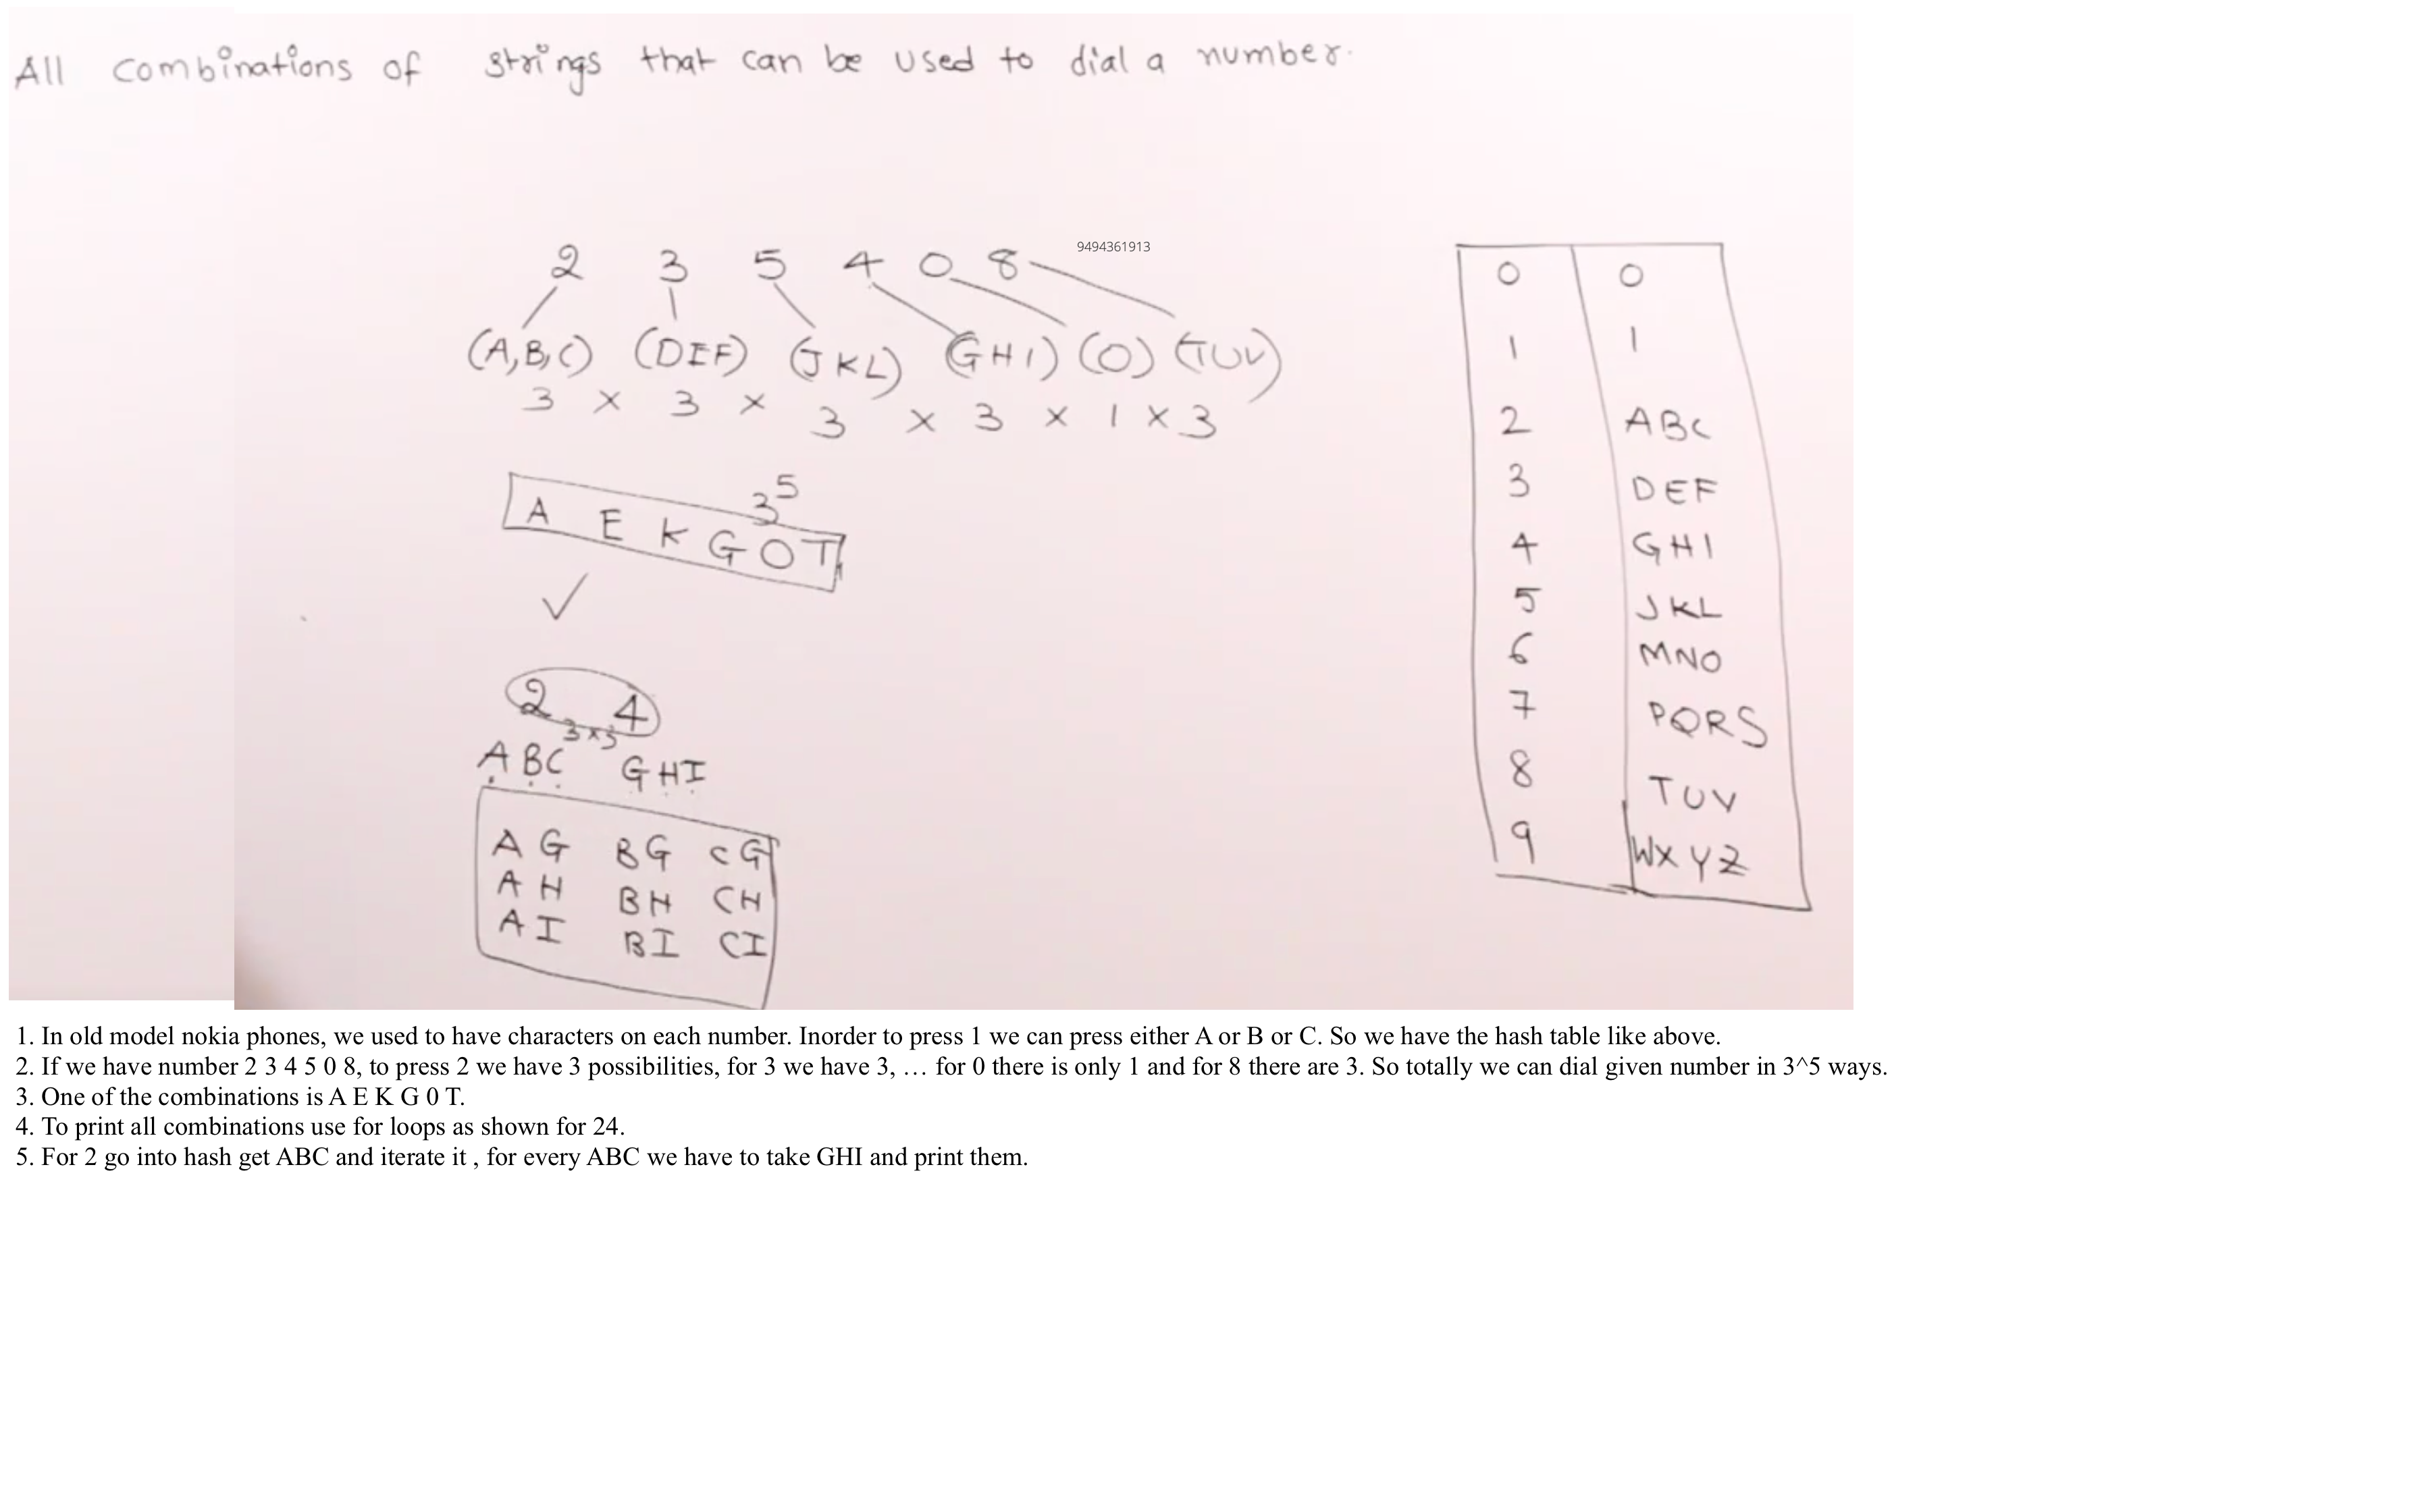 All combinations of strings that can be used to dial a number.
9494361913
2 3 5 4 0 8
(A,B,C) (DEF) (JKL) (GHI) (0) (TUV)
3 × 3 × 3 × 3 × 1 × 3
3^5
A E K G O T
✓
2 4
3×3
ABC GHI
AG BG CG
AH BH CH
AI BI CI
0 0
1 1
2 ABC
3 DEF
4 GHI
5 JKL
6 MNO
7 PQRS
8 TUV
9 WXYZ
1. In old model nokia phones, we used to have characters on each number. Inorder to press 1 we can press either A or B or C. So we have the hash table like above.
2. If we have number 2 3 4 5 0 8, to press 2 we have 3 possibilities, for 3 we have 3, … for 0 there is only 1 and for 8 there are 3. So totally we can dial given number in 3^5 ways.
3. One of the combinations is A E K G 0 T.
4. To print all combinations use for loops as shown for 24.
5. For 2 go into hash get ABC and iterate it , for every ABC we have to take GHI and print them.